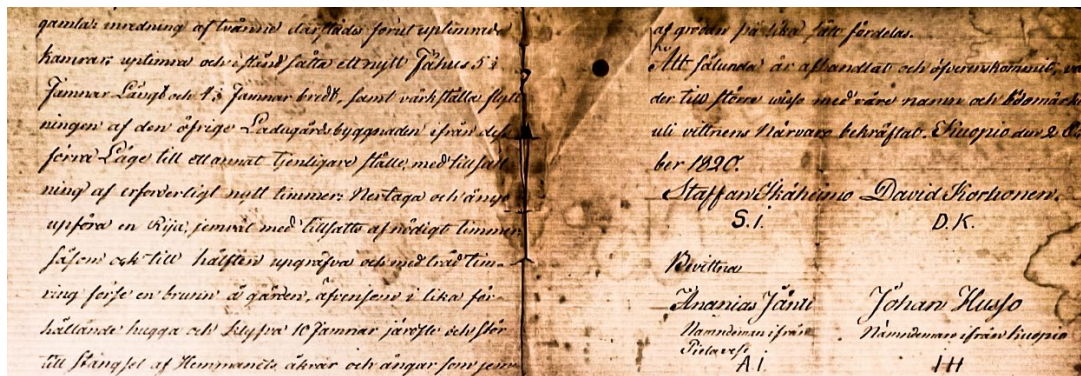 gamla; inredning af tvänne därstädes förut uptimrade
kamrar; uptimra och i stånd sätta ett nytt Fähus 5 ½
Famnar Långt och 4 ½ Famnar bredt, samt värkställa flytt
ningen af den öfrige Ladugårdsbyggnaden ifrån dess
förra Läge till ett annat tjenligare ställe med tillsätt
ning af erforderligt nytt timmer; Nertaga och ånyo
upföra en Rija, jemväl med tillsatts af nödigt timmer
såsom ock till hälften upgräfva och med träd tim-
ring förse en brunn å gården, äfvensom i lika för-
hållande hugga och klyfva 10 Famnar järdsle och stör
till stängsel af Hemmanets åkrar och ängar som jem
af gröda på lika sätt fördelas.
Att sålunda är afhandlat och öfverenskommit,
der till större wisso med våre namn och bomärke
uti vittnens Närvaro bekräftat. Kuopio den 2
ber 1820.
Staffan Ikäheimo David Korhonen.
S.I. D.K.
Bevittna
Ananias Jänti Johan Husso
Nämndeman ifrån Nämndeman ifrån Kuopio
Pielavesi
A.I. IH